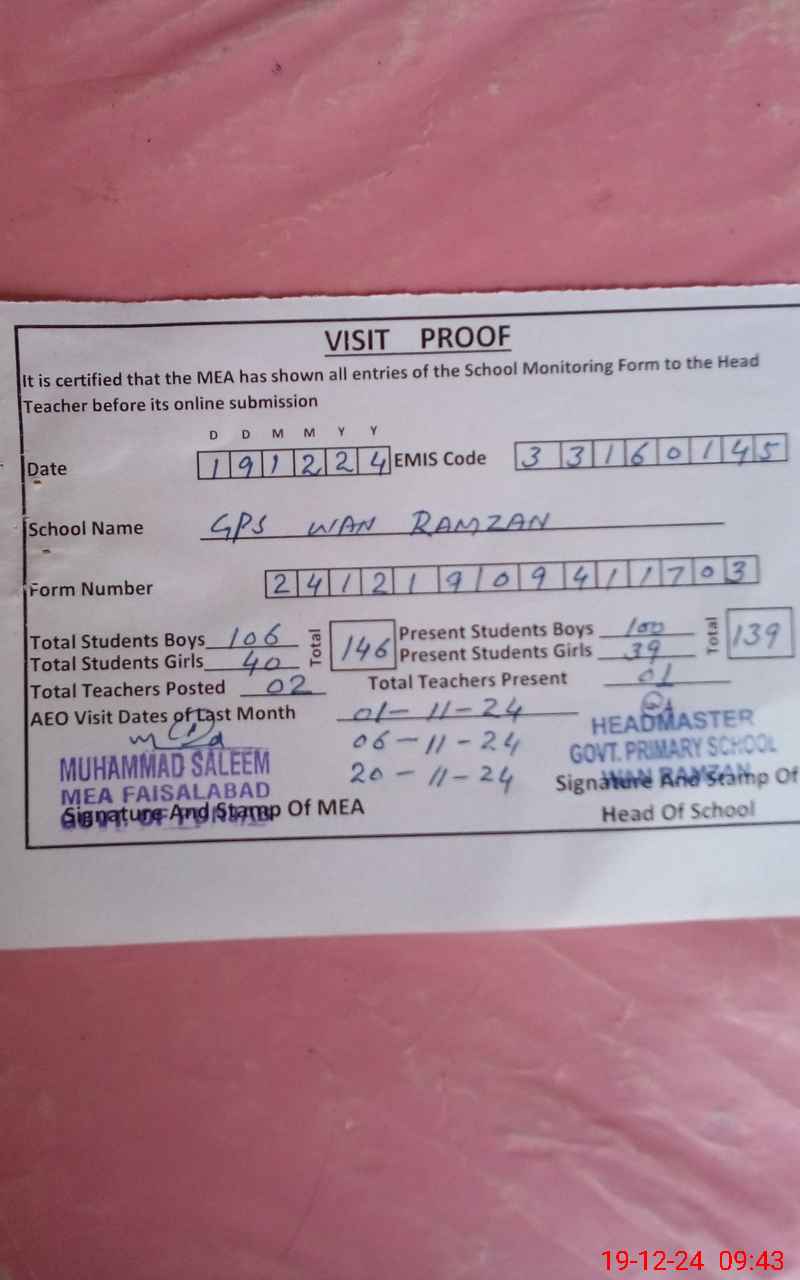 VISIT PROOF
It is certified that the MEA has shown all entries of the School Monitoring Form to the Head
Teacher before its online submission
D D M M Y Y
Date 191224 EMIS Code 33160145
School Name GPS WAN RAMZAN
Form Number 24121909411703
Total Students Boys 106 Total 146 Present Students Boys 100 Total 139
Total Students Girls 40 Present Students Girls 39
Total Teachers Posted 02 Total Teachers Present 01
AEO Visit Dates of Last Month 01-11-24
06-11-24
20-11-24
MUHAMMAD SALEEM
MEA FAISALABAD
GOVT. OF PUNJAB
Signature And Stamp Of MEA
HEADMASTER
GOVT. PRIMARY SCHOOL
WAN RAMZAN
Signature And Stamp Of
Head Of School
19-12-24 09:43